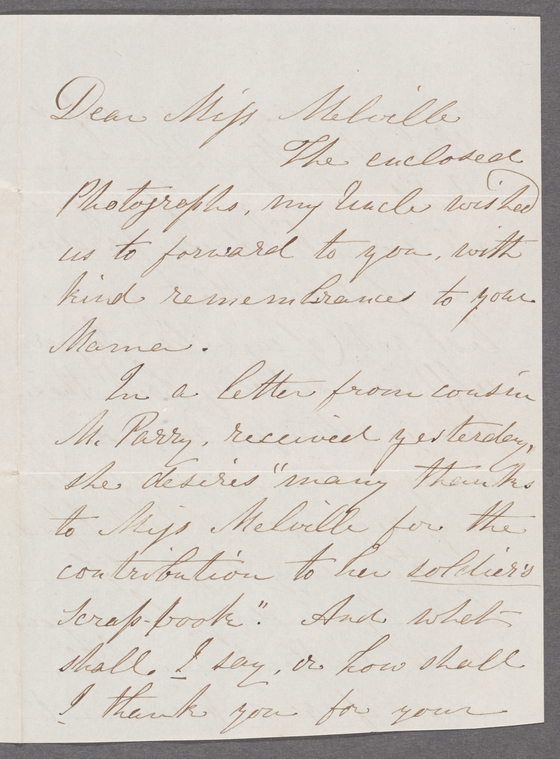 Dear Miss Melville
The enclosed
Photographs, my Uncle wished
us to forward to you, with
kind remembrances to your
Mama.
In a letter from cousin
M. Parry, received yesterday,
she desires "many thanks
to Miss Melville for the
contribution to her soldier's
scrap-book". And what
shall I say, or how shall
I thank you for your